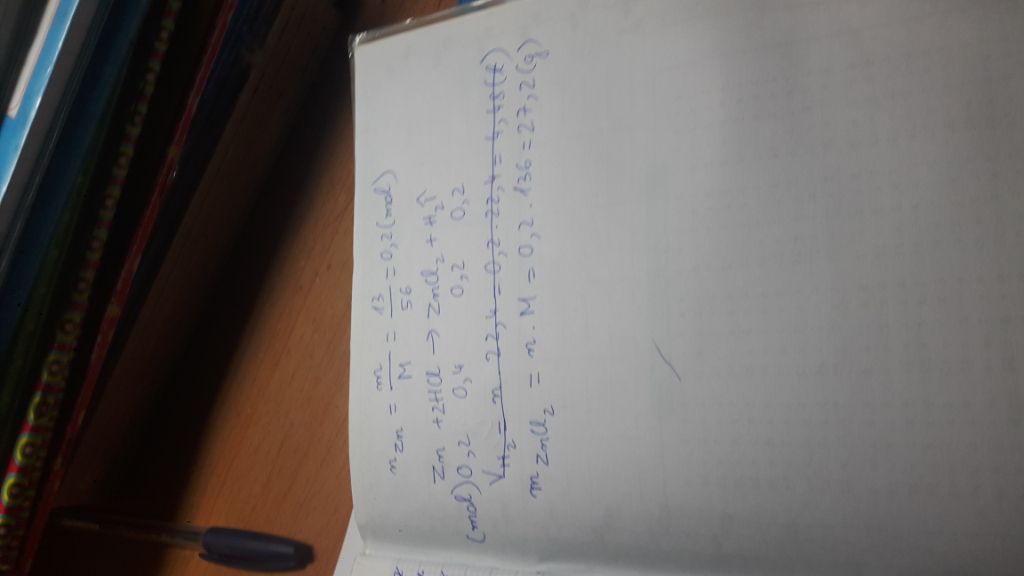 n Zn = m/M = 13/56 = 0,2 (mol)
Zn + 2HCl → ZnCl₂ + H₂↑
(mol) 0,2 0,4 0,2 0,2
V H₂ = n 22,4 = 0,2 . 22,4 = 4,48 (l)
m ZnCl₂ = n . M = 0,2 . 136 = 27,2 (g)